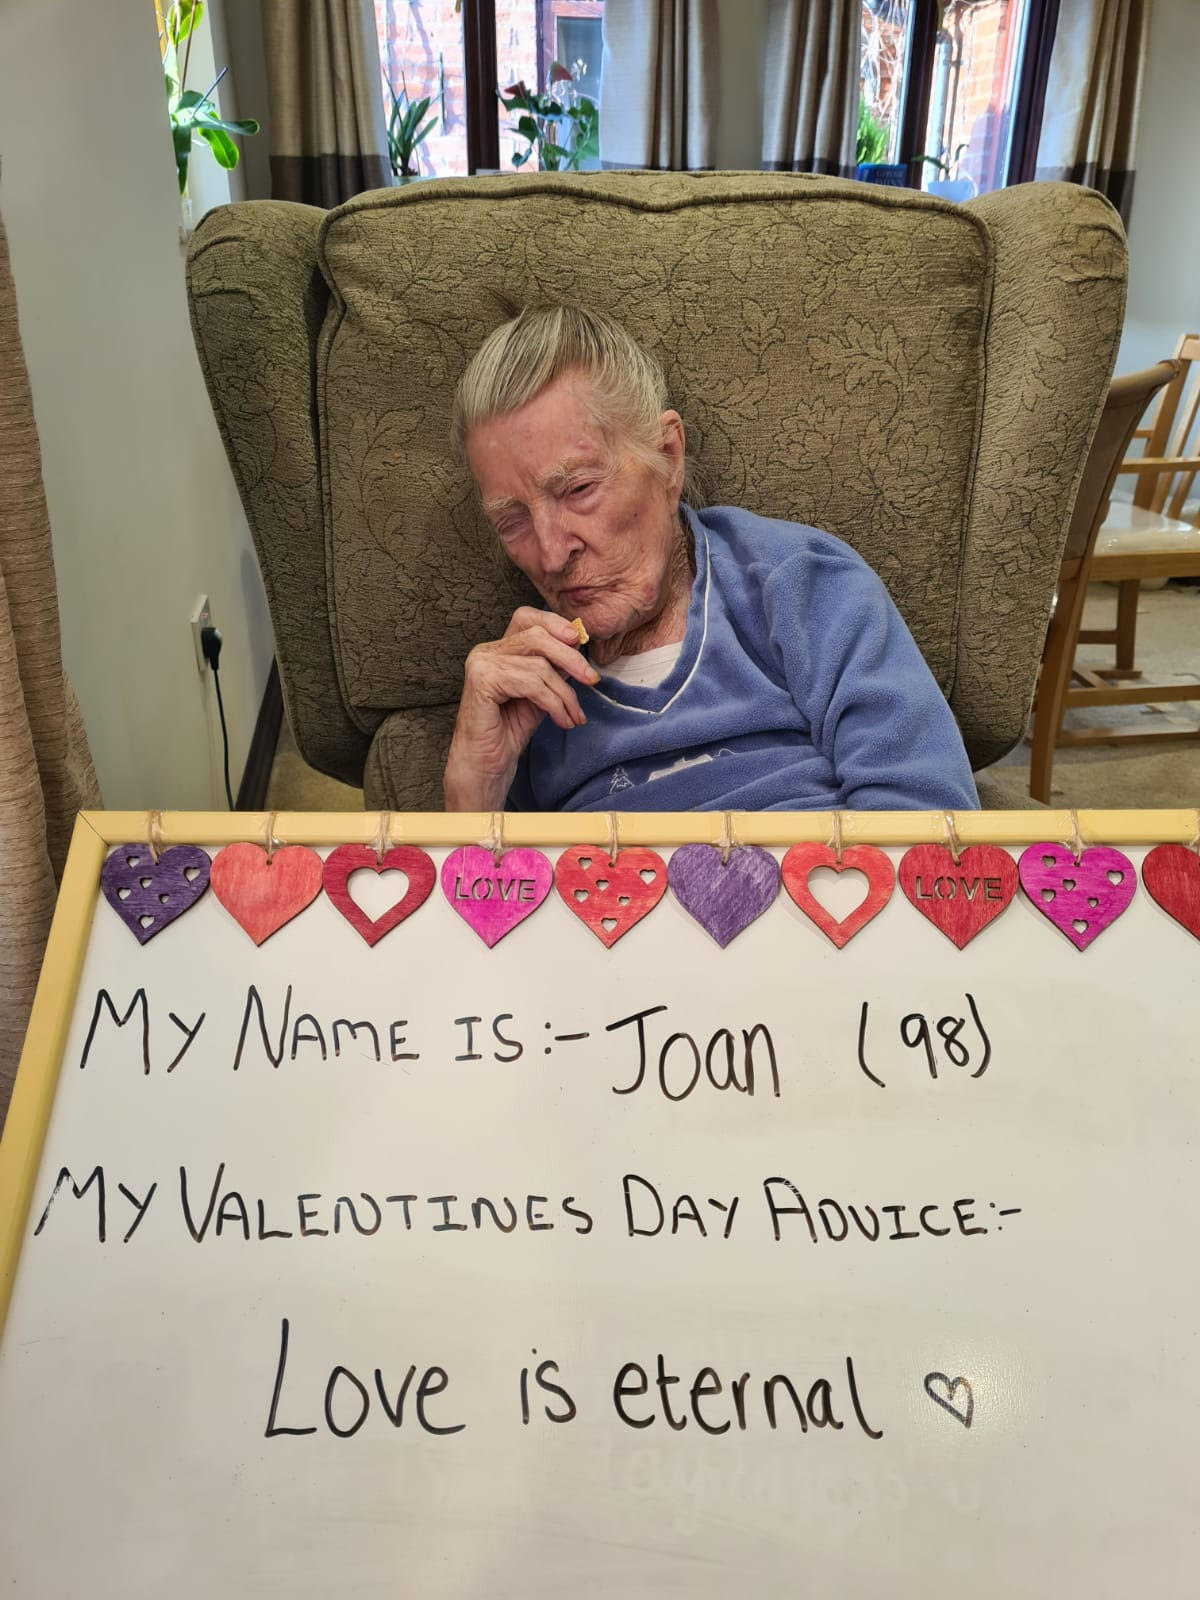 LOVE LOVE
MY NAME IS:- Joan (98)
MY VALENTINES DAY ADVICE:-
Love is eternal ♡